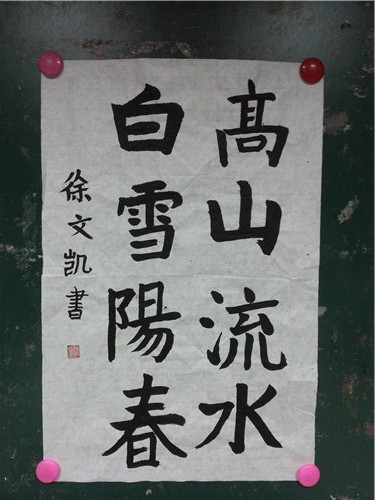 髙山流水
白雪陽春
徐文凯書